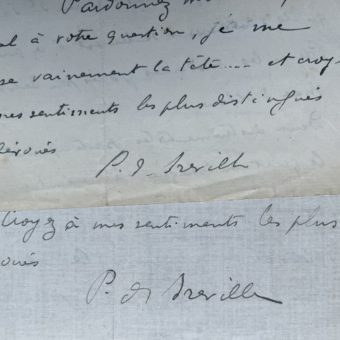 Pardonnez
à votre question, je me
vainement la tête.... et croy-
mes sentiments les plus distingués
dévoués
P. de Breville
Croyez à mes sentiments les plus
P. de Breville